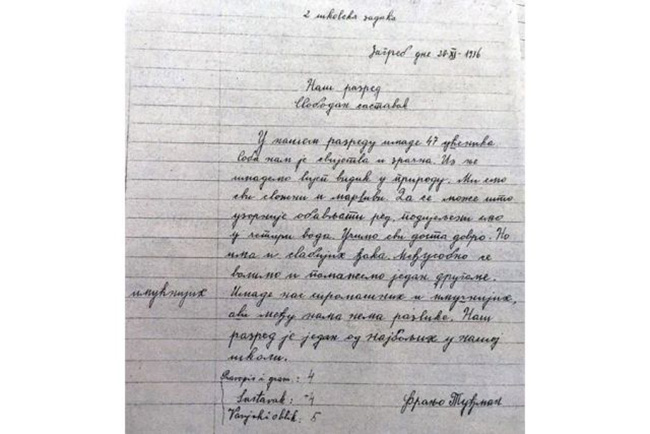 2 школска задаћа
Загреб дне 28-XI-1936
Наш разред
Слободан састав
У нашем разреду имаде 47 ученика
соба нам је свијетла и зрачна. Из ње
имадемо лијеп видик у природу. Ми смо
сви сложни и марљиви. Да се може што
узорније обављати ред, подијељени смо
у четири вода. Учимо сви доста добро. Но
има и слабијих ђака. Међусобно се
волимо и помажемо један другоме.
Имаде нас сиромашних и имућнијих,
имућнијих
али међу нама нема разлике. Наш
разред је један од најбољих у нашој
школи.
Pravopis i gram.: 4
Sastavak: -4
Vanjski oblik: 5
Фрањо Туђман